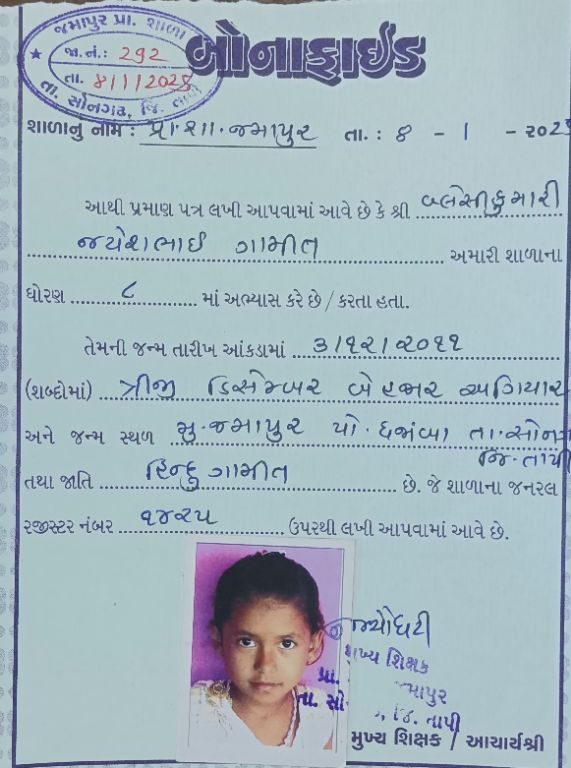 જમાપુર પ્રા. શાળા
જા.નં.: 292
તા. 8/1/2025
તા. સોનગઢ, જિ. તાપી
બોનાફાઈડ
શાળાનું નામ : પ્રા. શા. જમાપુર તા. : ૪ - ૧ - ૨૦૨
આથી પ્રમાણ પત્ર લખી આપવામાં આવે છે કે શ્રી બ્લેસીકુમારી
જયેશભાઈ ગામીત અમારી શાળાના
ધોરણ ૮ માં અભ્યાસ કરે છે / કરતા હતા.
તેમની જન્મ તારીખ આંકડામાં ૩/૧૨/૨૦૧૧
(શબ્દોમાં) ત્રીજી ડિસેમ્બર બે હજાર અગિયાર
અને જન્મ સ્થળ મુ. જમાપુર પો. ધજાંબા તા. સોન
જિ. તાપી
તથા જાતિ હિન્દુ ગામીત છે. જે શાળાના જનરલ
રજીસ્ટર નંબર ૧૪૨૫ ઉપરથી લખી આપવામાં આવે છે.
મુખ્ય શિક્ષક
પ્રા. માપુર
તા. સો જિ. તાપી
મુખ્ય શિક્ષક / આચાર્યશ્રી